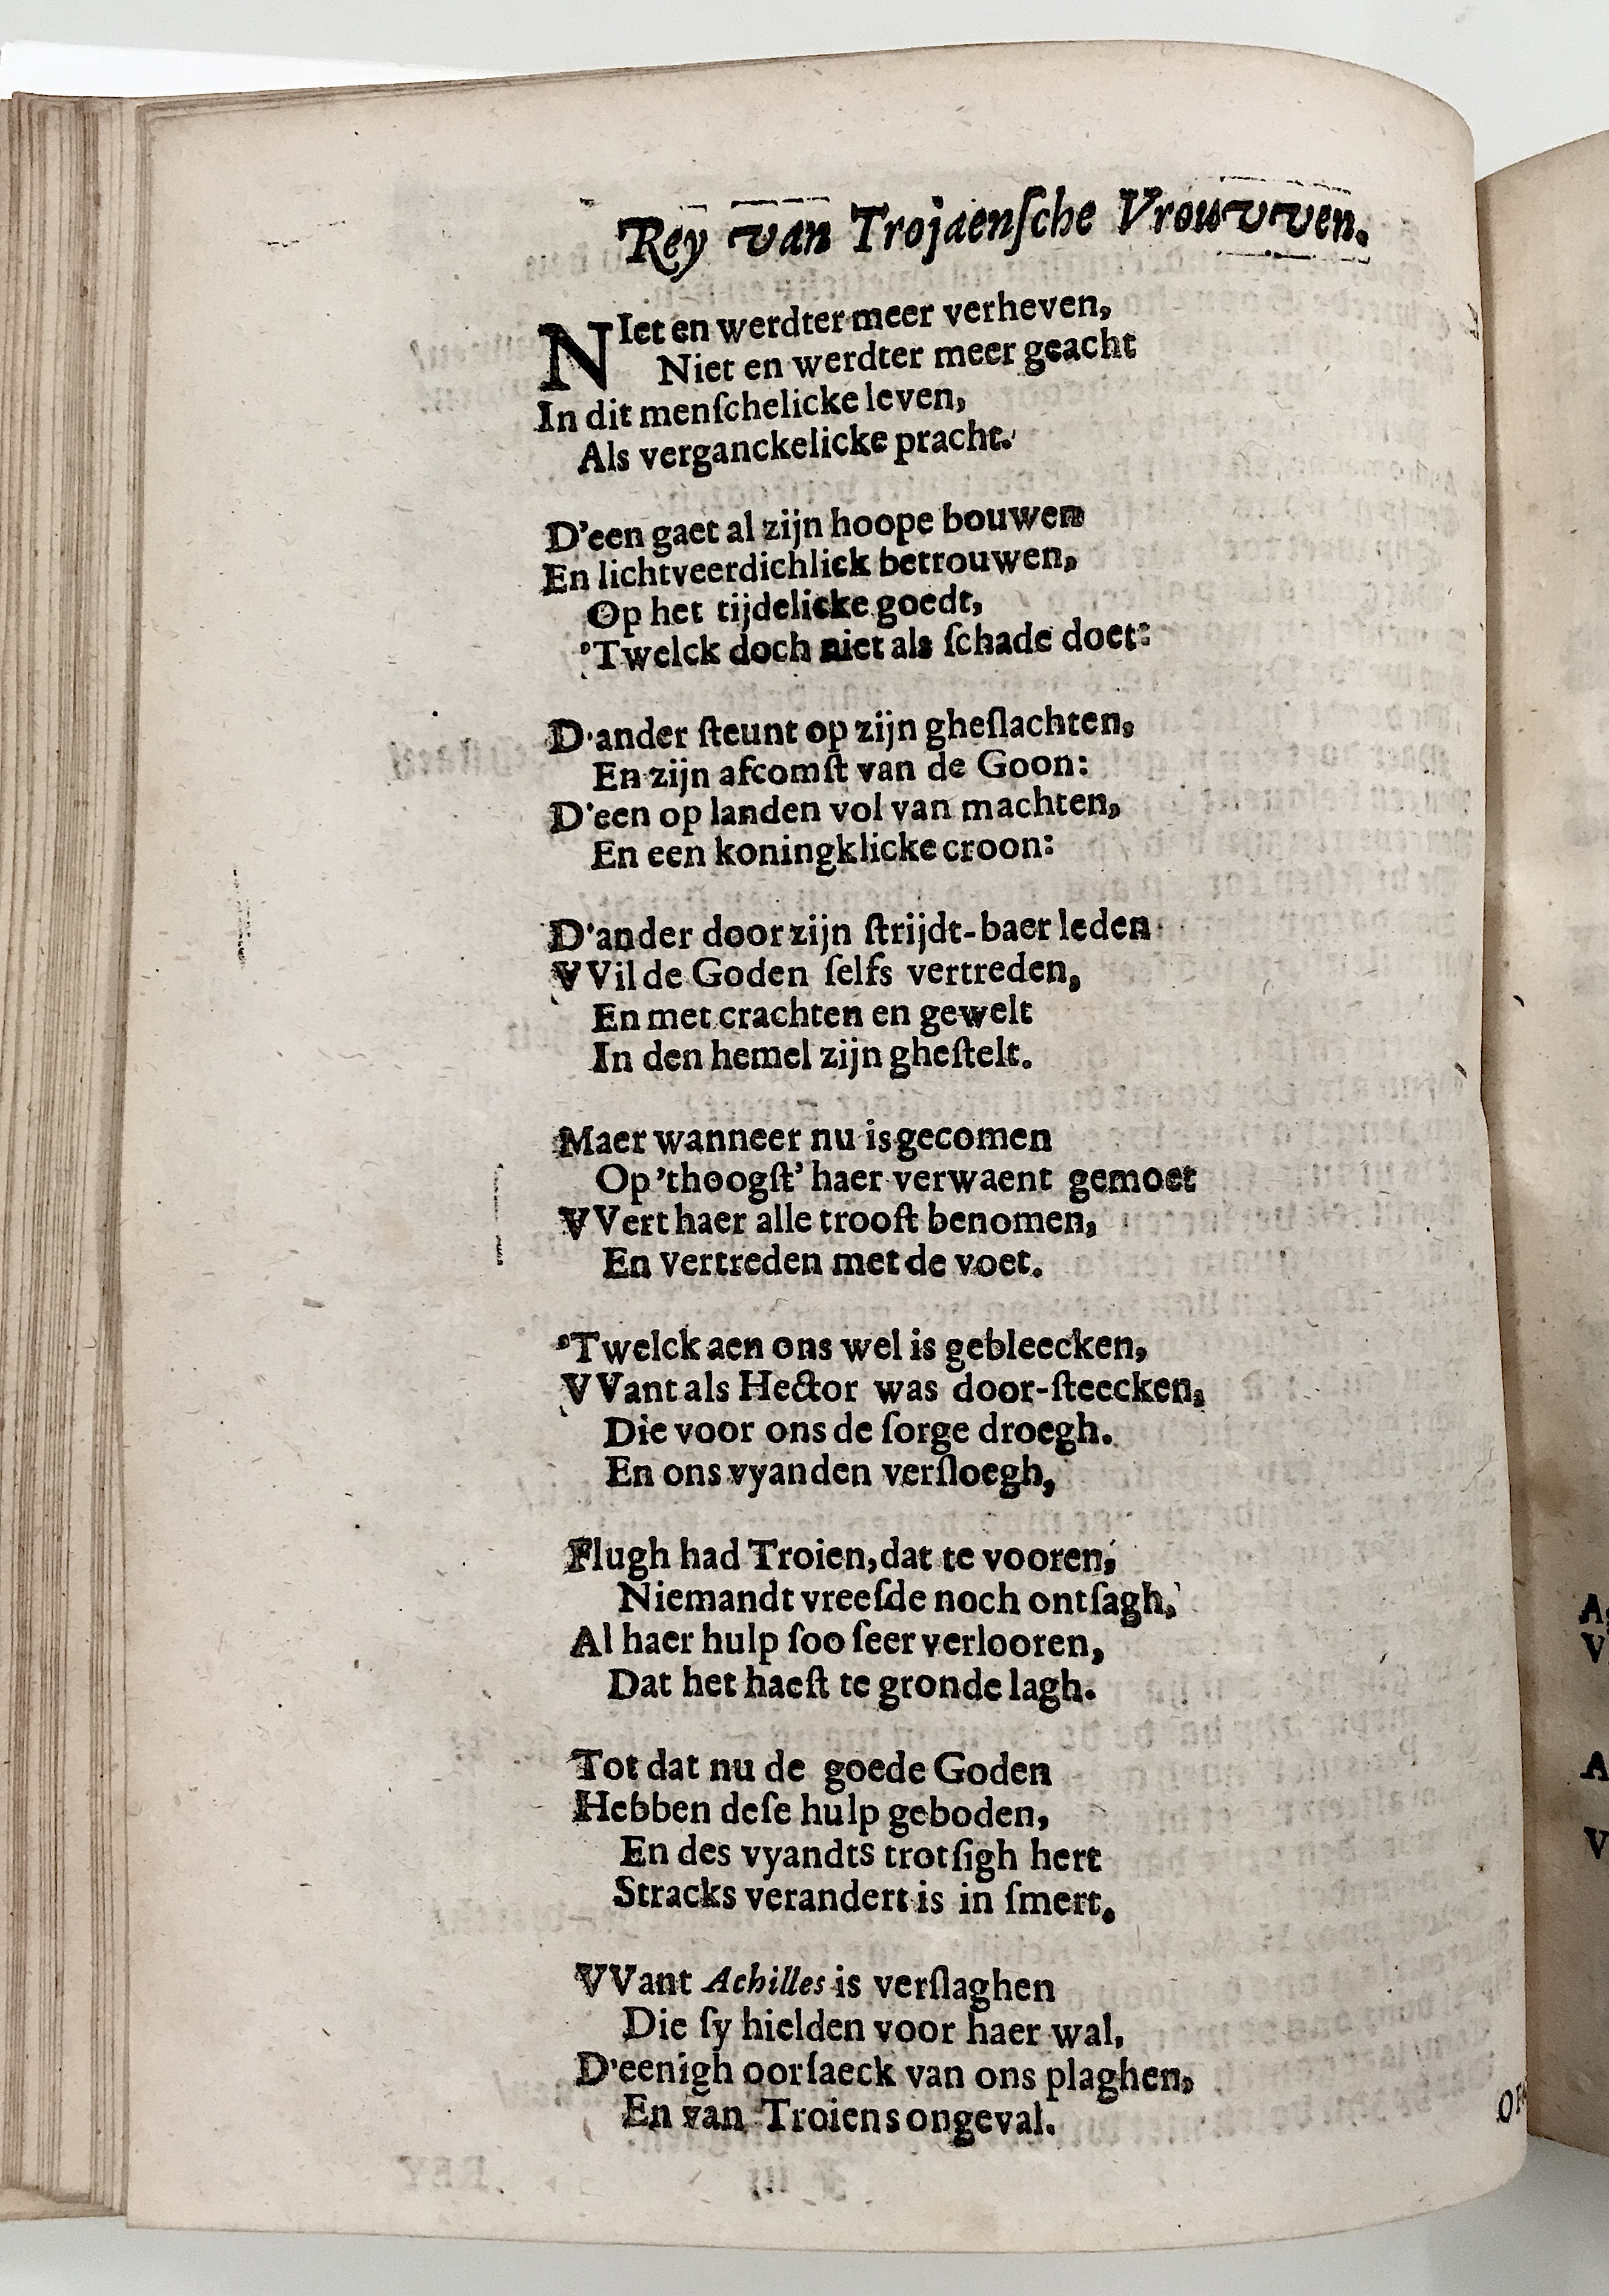 Rey van Trojaenſche Vrouvven.
NIet en werdter meer verheven,
Niet en werdter meer geacht
In dit menſchelicke leven,
Als verganckelicke pracht.
D'een gaet al zijn hoope bouwen
En lichtveerdichlick betrouwen,
Op het tijdelicke goedt,
'Twelck doch niet als ſchade doet:
D'ander ſteunt op zijn gheſlachten,
En zijn afcomſt van de Goon:
D'een op landen vol van machten,
En een koningklicke croon:
D'ander door zijn ſtrijdt-baer leden
VVil de Goden ſelfs vertreden,
En met crachten en gewelt
In den hemel zijn gheſtelt.
Maer wanneer nu is gecomen
Op 'thoogſt' haer verwaent gemoet
VVert haer alle trooſt benomen,
En vertreden met de voet.
'Twelck aen ons wel is gebleecken,
VVant als Hector was door-ſteecken,
Die voor ons de ſorge droegh.
En ons vyanden verſloegh,
Flugh had Troien, dat te vooren,
Niemandt vreeſde noch ontſagh,
Al haer hulp ſoo ſeer verlooren,
Dat het haeſt te gronde lagh.
Tot dat nu de goede Goden
Hebben deſe hulp geboden,
En des vyandts trotſigh hert
Stracks verandert is in ſmert.
VVant Achilles is verſlaghen
Die ſy hielden voor haer wal,
D'eenigh oorſaeck van ons plaghen,
En van Troiens ongeval.